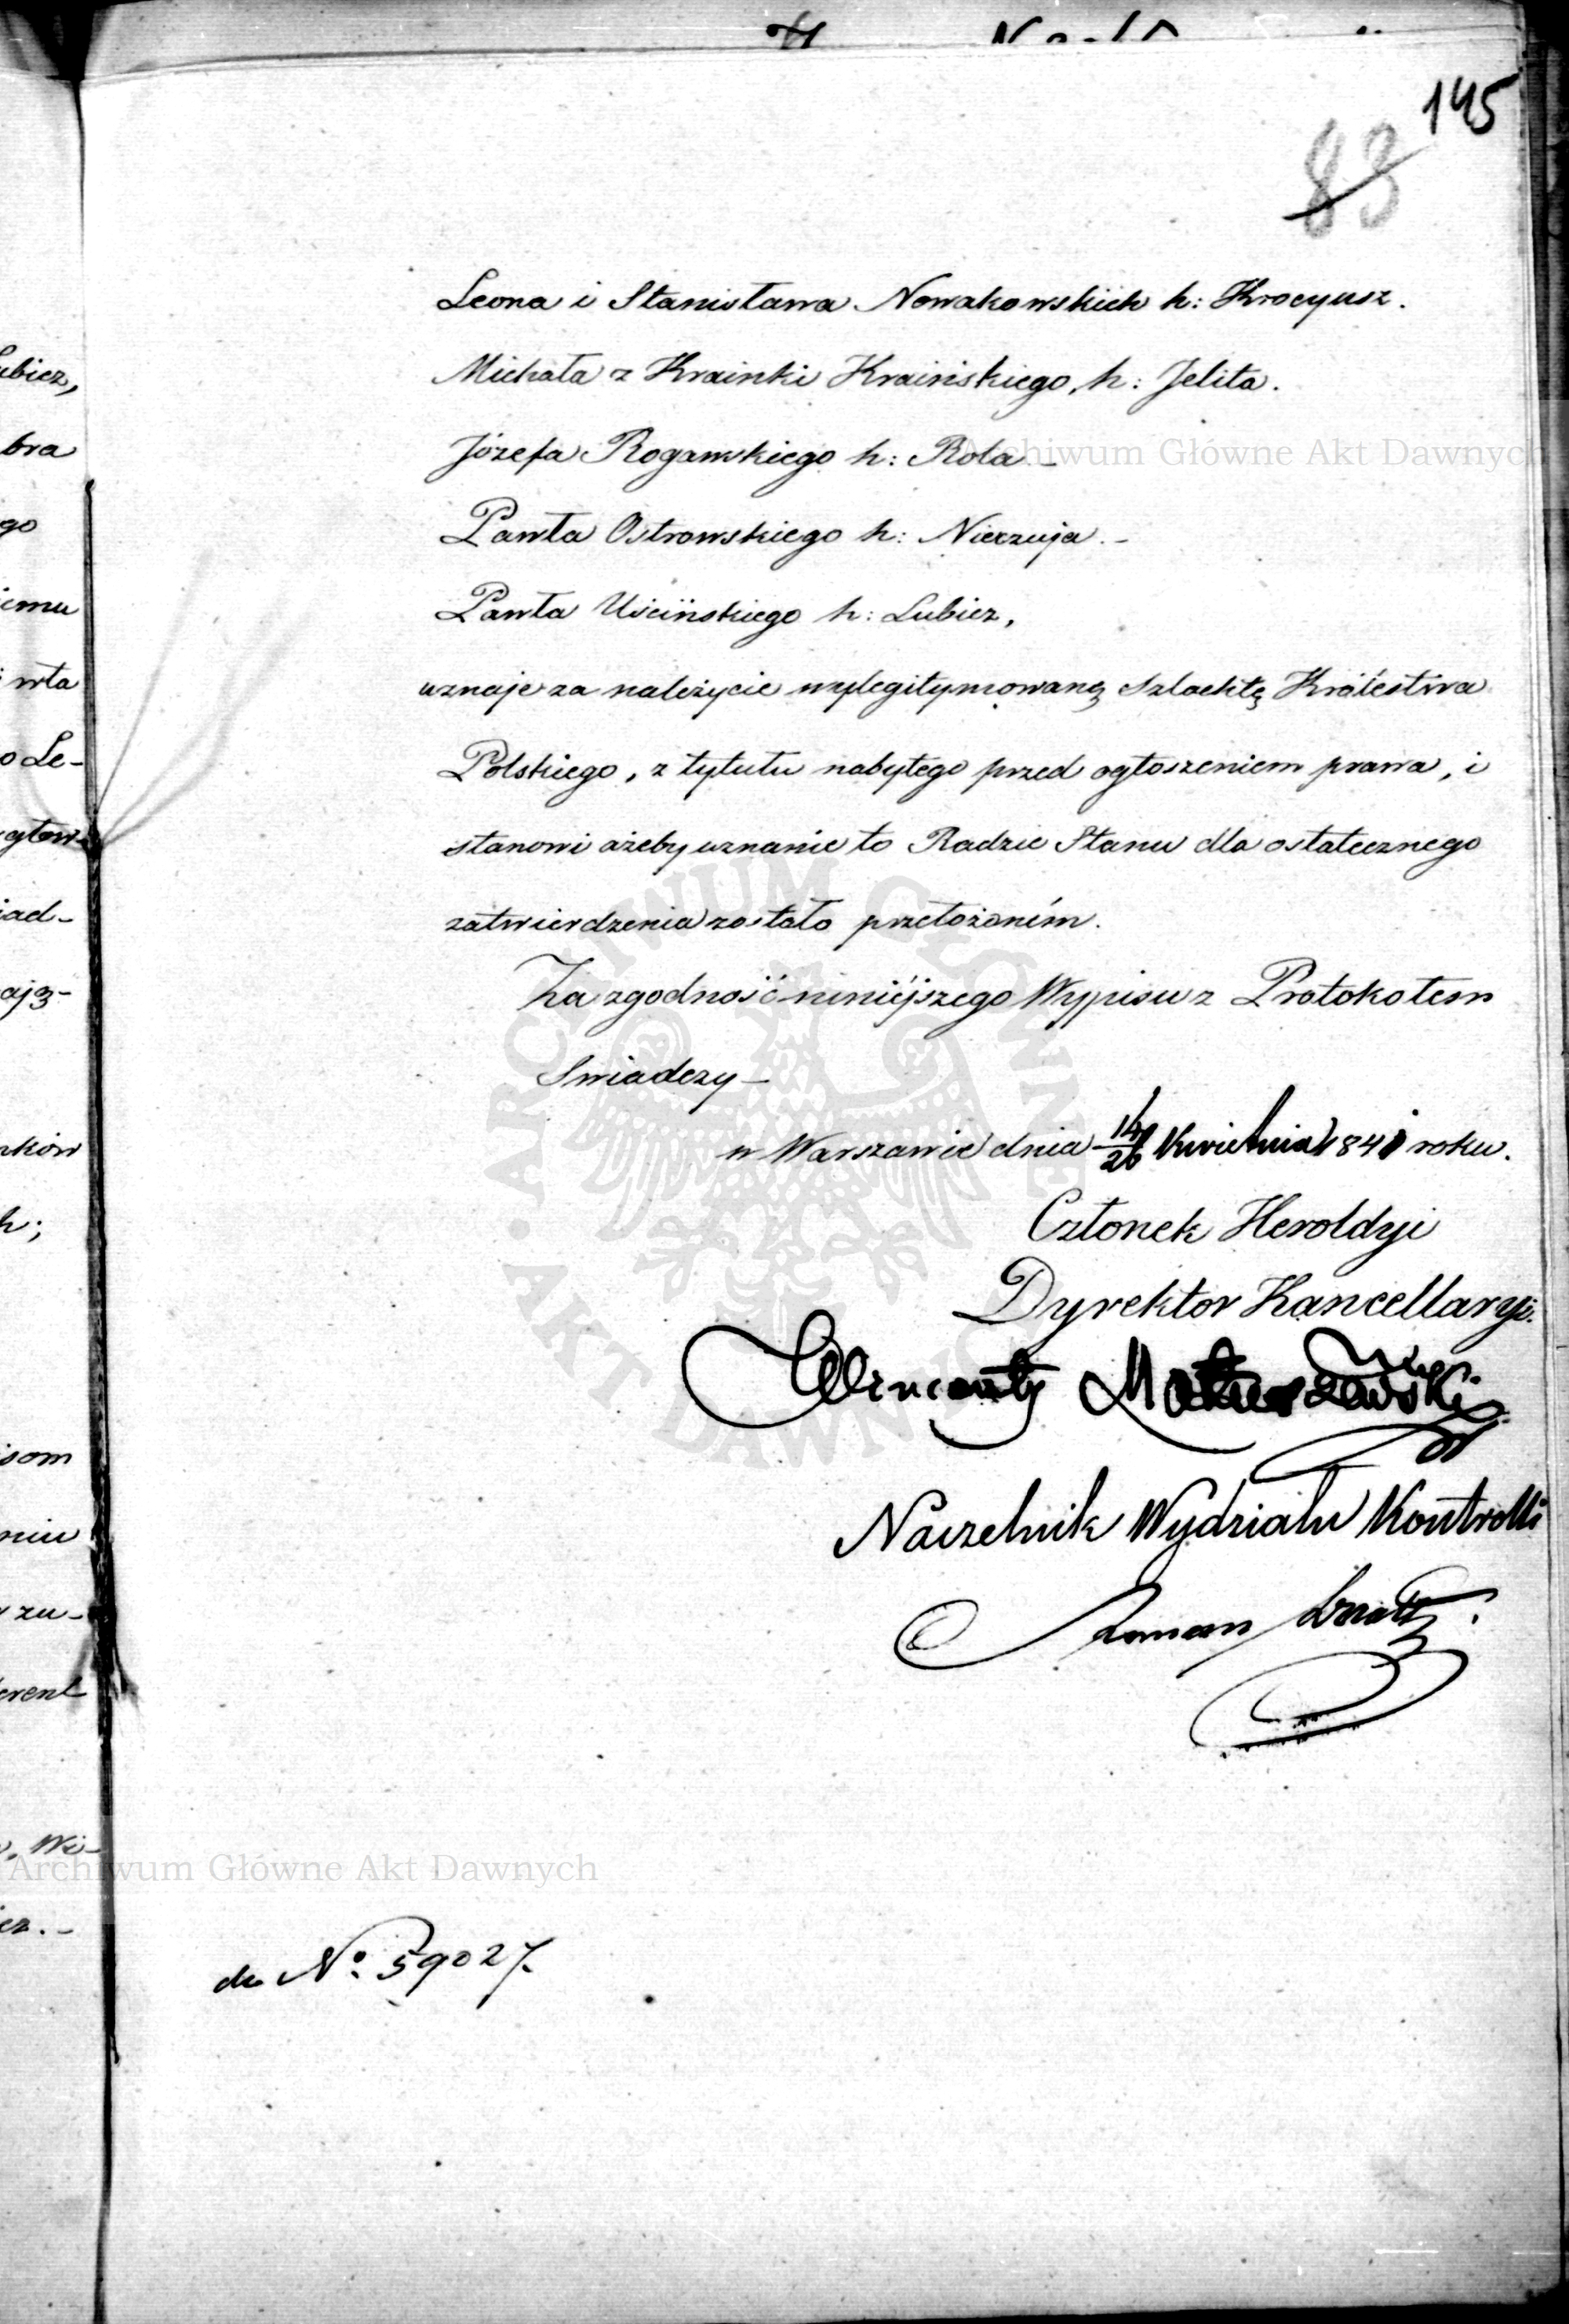 145
83
Leona i Stanisława Nowakowskich h: Krocyusz.
Michała z Krainki Kraińskiego, h: Jelita.
Józefa Rogawskiego h: Rola –
Archiwum Główne Akt Dawnych
Pawła Ostrowskiego h: Nieczuja. –
Pawła Uścińskiego h: Lubicz,
uznaje za należycie wylegitymowaną Szlachtę Królestwa
Polskiego, z tytułu nabytego przed ogłoszeniem prawa, i
stanowi ażeby uznanie to Radzie Stanu dla ostatecznego
zatwierdzenia zostało przełożoném.
Za zgodność niniéjszego Wypisu z Protokołem
Swiadczy –
w Warszawie dnia 14/26 Kwietnia 1841 roku.
Członek Heroldyi
Dyrektor Kancellaryi.
Wincenty Matuszewski
Naczelnik Wydziału Kontrolli
Roman
ubicz,
bra
go
iemu
wła
o Le-
głow-
iad-
ają-
nków
h;
isom
niu
zu-
erent
Wi-
Archiwum Główne Akt Dawnych
cz. –
do Nº. 59027.
ARCHIWUM GŁÓWNE AKT DAWNYCH